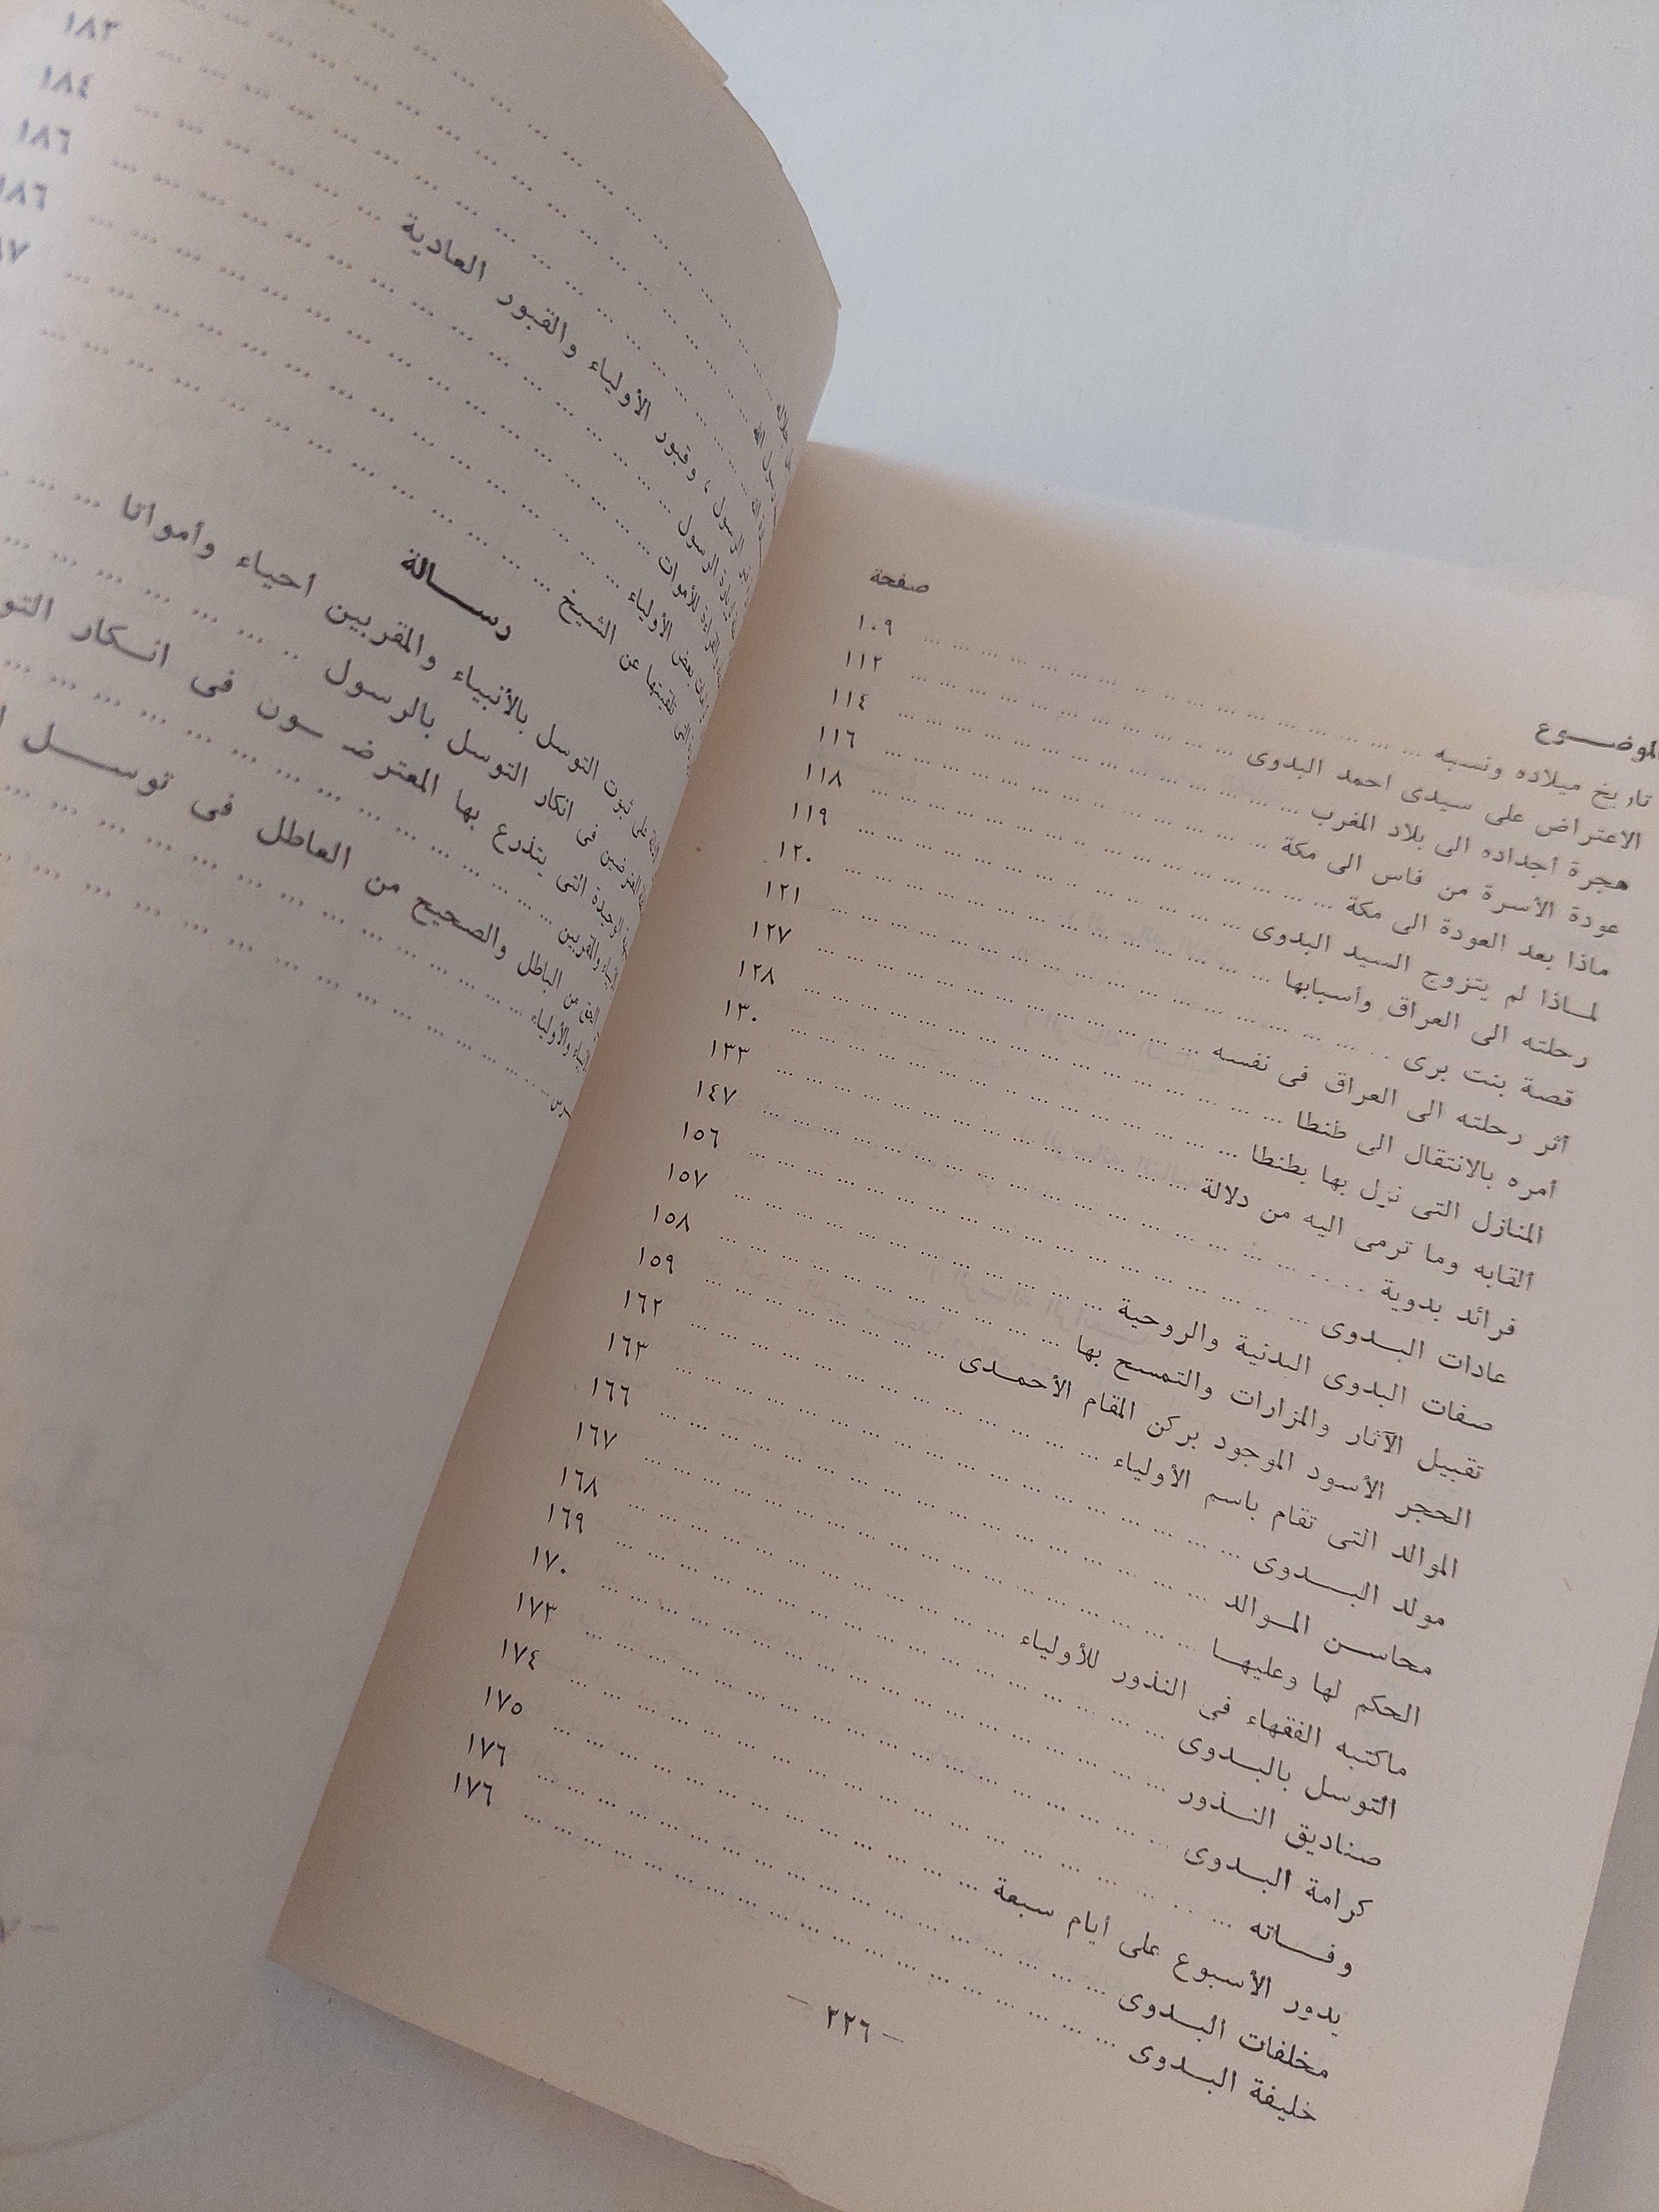 الموضوع صفحة
تاريخ ميلاده ونسبه ... ١٠٩
الاعتراض على سيدى احمد البدوى ... ١١٢
هجرة أجداده الى بلاد المغرب ... ١١٤
عودة الأسرة من فاس الى مكة ... ١١٦
ماذا بعد العودة الى مكة ... ١١٨
لماذا لم يتزوج السيد البدوى ... ١١٩
رحلته الى العراق وأسبابها ... ١٢٠
قصة بنت برى ... ١٢١
أثر رحلته الى العراق فى نفسه ... ١٢٧
أمره بالانتقال الى طنطا ... ١٢٨
المنازل التى نزل بها بطنطا ... ١٣٠
ألقابه وما ترمى اليه من دلالة ... ١٣٣
فرائد بدوية ... ١٤٧
عادات البدوى ... ١٥٦
صفات البدوى البدنية والروحية ... ١٥٧
تقبيل الآثار والمزارات والتمسح بها ... ١٥٨
الحجر الأسود الموجود بركن المقام الأحمدى ... ١٥٩
الموالد التى تقام باسم الأولياء ... ١٦٢
مولد البدوى ... ١٦٣
محاسن الموالد ... ١٦٦
الحكم لها وعليها ... ١٦٧
ماكتبه الفقهاء فى النذور للأولياء ... ١٦٨
التوسل بالبدوى ... ١٦٩
صناديق النذور ... ١٧٠
كرامة البدوى ... ١٧٣
وفاته ... ١٧٤
يدور الأسبوع على أيام سبعة ... ١٧٥
مخلفات البدوى ... ١٧٦
خليفة البدوى ... ١٧٦
– ٢٢٦ –
١٨٣
١٨٤
الرسول ، وقبور الأولياء والقبور العادية ... ١٨٦
الرسول ... ١٨٦
للأموات
بعض الأولياء ...
التى تلقيتها عن الشيخ ...
رسالة
على ثبوت التوسل بالأنبياء والمقربين احياء وأمواتا ...
فى انكار التوسل بالرسول ...
الوحيدة التى يتذرع بها المعترضون فى انكار
والمقربين ...
من الباطل والصحيح من العاطل فى توسل
والأولياء ...